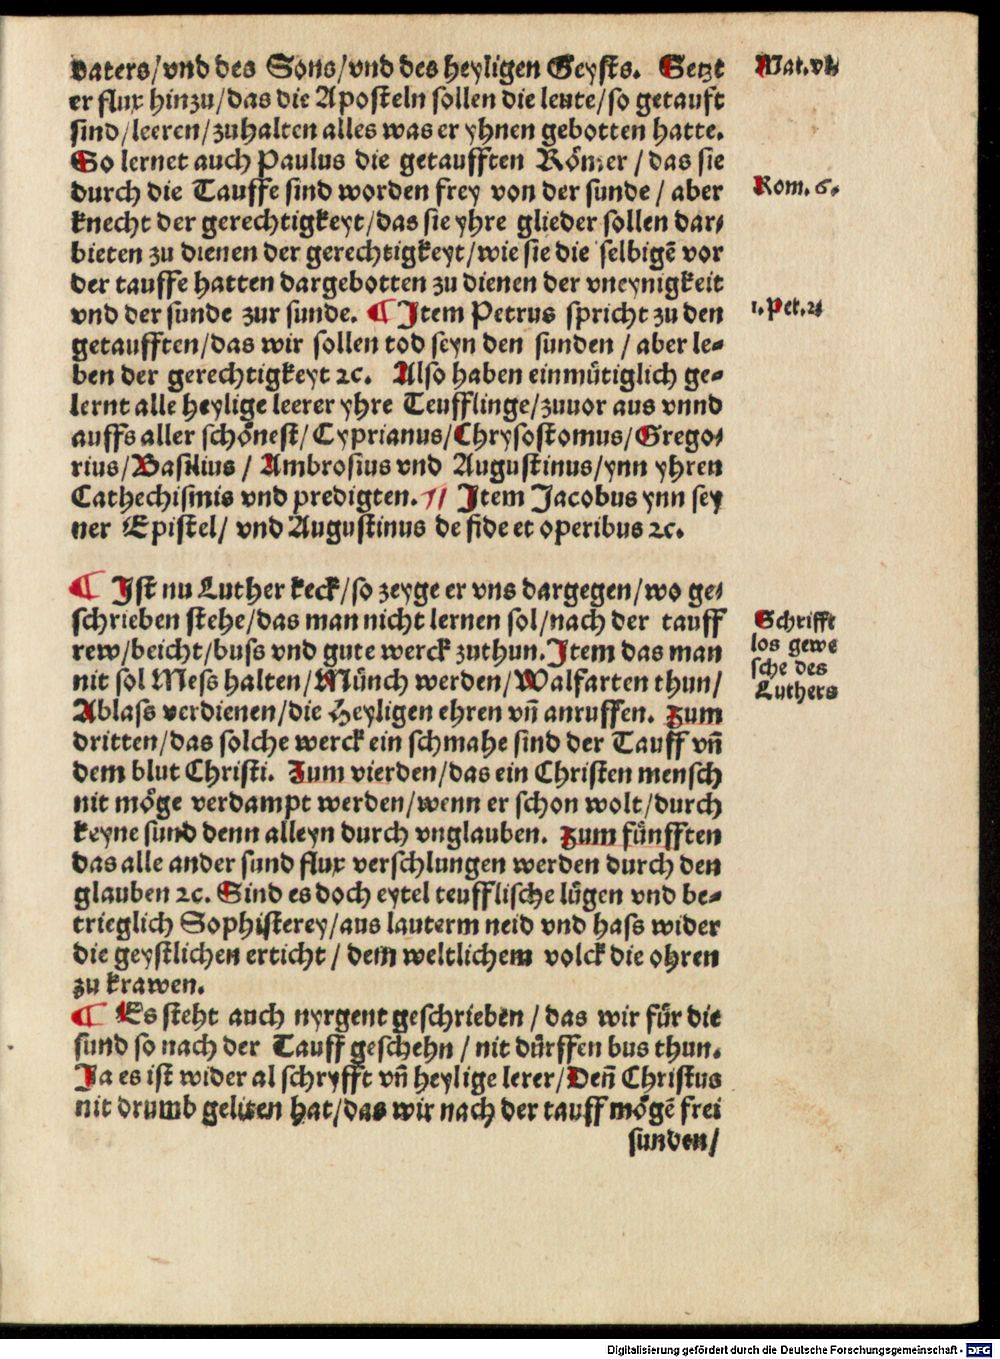 vaters/vnd des Sons/vnd des heyligen Geysts. Setzt
er flux hinzu/das die Aposteln sollen die leute/so getauft
sind/leeren/zuhalten alles was er yhnen gebotten hatte.
So lernet auch Paulus die getaufften Römer/das sie
durch die Tauffe sind worden frey von der sunde/aber
knecht der gerechtigkeyt/das sie yhre glieder sollen dar/
bieten zu dienen der gerechtigkeyt/wie sie die selbigē vor
der tauffe hatten dargebotten zu dienen der vneynigkeit
vnd der sunde zur sunde. ¶ Item Petrus spricht zu den
getaufften/das wir sollen tod seyn den sunden/aber le⸗
ben der gerechtigkeyt ꝛc. Also haben einmütiglich ge⸗
lernt alle heylige leerer yhre Teufflinge/zuuor aus vnnd
auffs aller schönest/Cyprianus/Chrysostomus/Grego/
rius/Basilius/Ambrosius vnd Augustinus/ynn yhren
Cathechismis vnd predigten. // Item Jacobus ynn sey
ner Epistel/vnd Augustinus de fide et operibus ꝛc.
¶ Ist nu Luther keck/so zeyge er vns dargegen/wo ge/
schrieben stehe/das man nicht lernen sol/nach der tauff
rew/beicht/buss vnd gute werck zuthun. Item das man
nit sol Mess halten/Münch werden/Walfarten thun/
Ablass verdienen/die Heyligen ehren vñ anruffen. Zum
dritten/das solche werck ein schmahe sind der Tauff vñ
dem blut Christi. Zum vierden/das ein Christen mensch
nit möge verdampt werden/wenn er schon wolt/durch
keyne sund denn alleyn durch vnglauben. Zum fünfften
das alle ander sund flux verschlungen werden durch den
glauben ꝛc. Sind es doch eytel teufflische lügen vnd be⸗
trieglich Sophisterey/aus lauterm neid vnd hass wider
die geystlichen erticht/dem weltlichem volck die ohren
zu krawen.
¶ Es steht auch nyrgent geschrieben/das wir für die
sund so nach der Tauff geschehn/nit dürffen bus thun.
Ja es ist wider al schryfft vñ heylige lerer/Deñ Christus
nit drumb geliten hat/das wir nach der tauff mögē frei
sunden/
Mat. vlt
Rom. 6.
1. Pet. 2
Schrifft
los gewe
sche des
Luthers
Digitalisierung gefördert durch die Deutsche Forschungsgemeinschaft - DFG